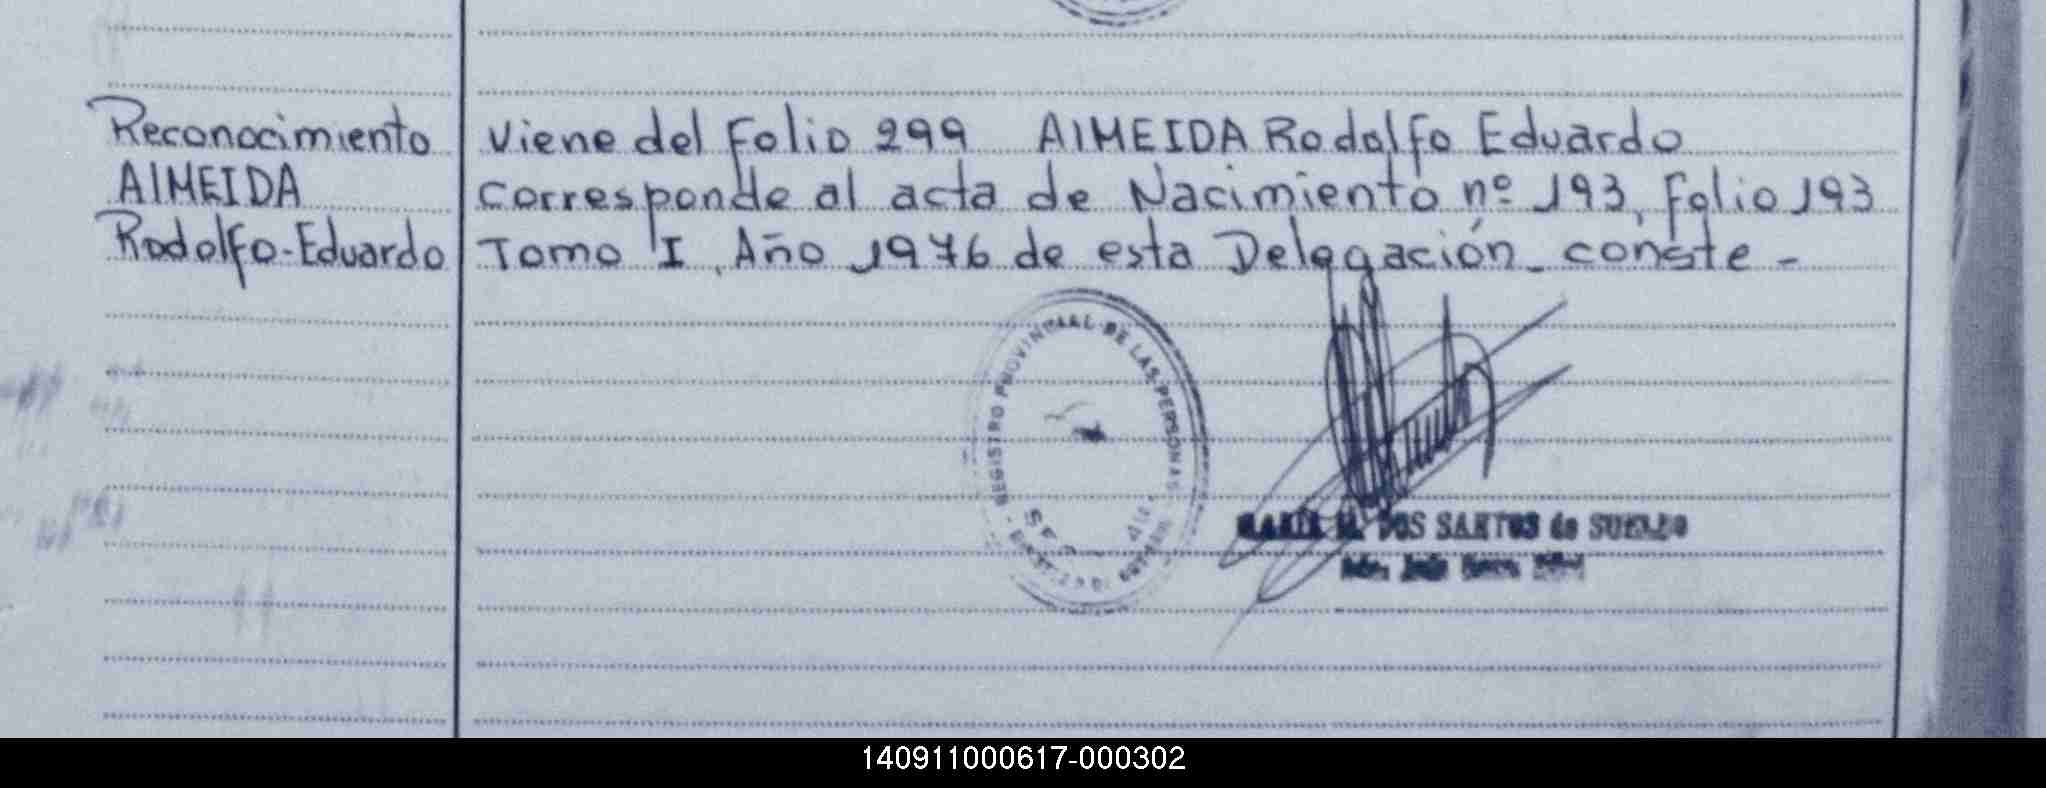 Reconocimiento
AlMEIDA
Rodolfo-Eduardo
Viene del Folio 299 AlMEIDA Rodolfo Eduardo
corresponde al acta de Nacimiento nº 193, Folio 193
Tomo I, Año 1976 de esta Delegación - conste -
REGISTRO PROVINCIAL DE LAS PERSONAS
DOS SANTOS de SUELDO
140911000617-000302